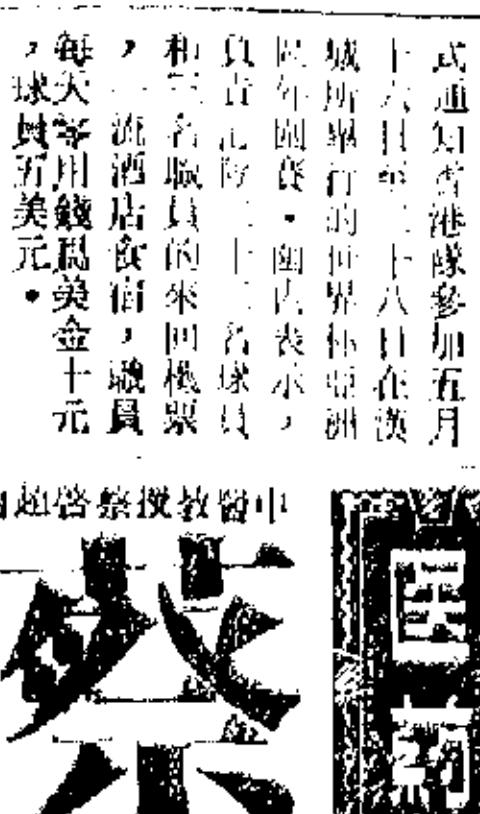 式通知香港隊參加五月
十六日至二十八日在漢
城所舉行的世界杯亞洲
區外圍賽・函內表示，
負責記隊二十二名球員
和三名職員的來回機票
，一流酒店食宿，職員
每天零用錢爲美金十元
，球員五美元・
中醫教授蔡啓超
蔡